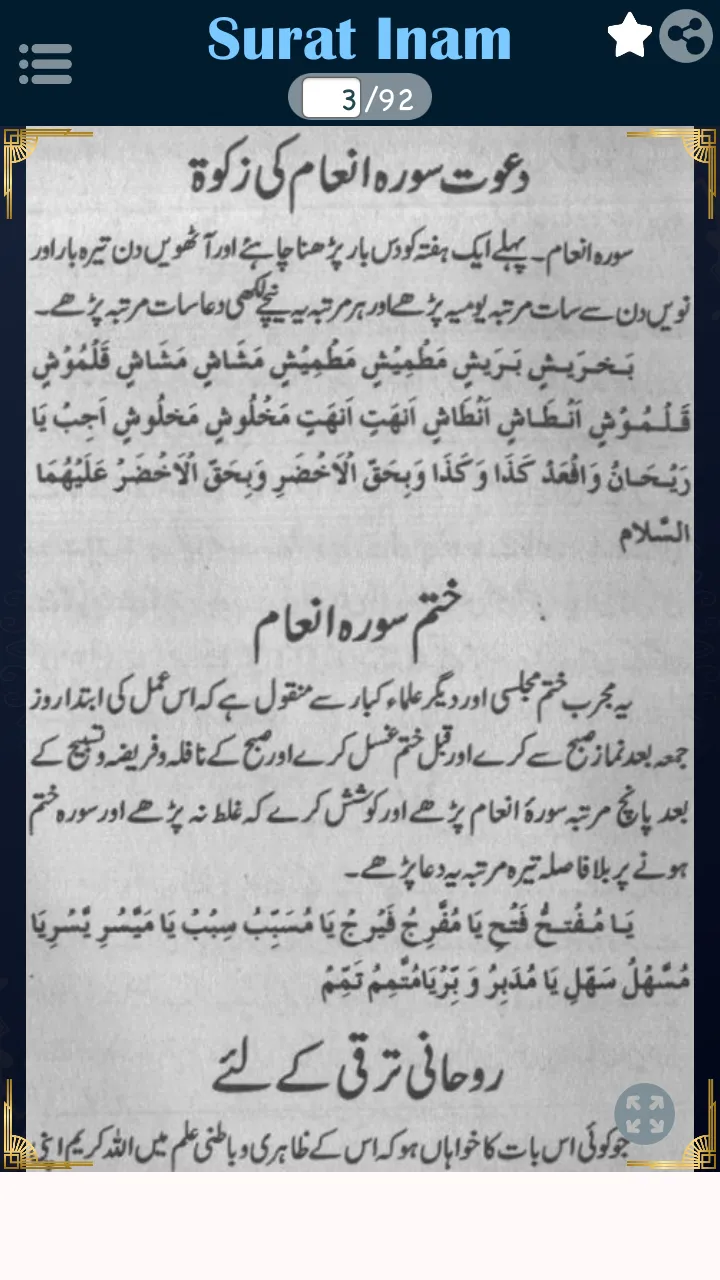 Surat Inam
3/92
دعوت سورہ انعام کی زکوۃ
سورہ انعام۔ پہلے ایک ہفتہ کو دس بار پڑھنا چاہئے اور آٹھویں دن تیرہ بار اور
نویں دن سے سات مرتبہ یومیہ پڑھے اور ہر مرتبہ یہ نیچے لکھی دعا سات مرتبہ پڑھے۔
بَخَرَیشٍ بَرَیشٍ مَطْمِیْشٍ مَطْمِیْشٍ مَشَاشٍ مَشَاشٍ قَلْمُوْشٍ
قَلْمُوْشٍ اَنْطَاشٍ اَنْطَاشٍ اَنهَتٍ اَنهَتٍ مَخْلُوشٍ مَخلُوشٍ اَجِبُ یَا
رَیْحَانُ وَافْعَدْ کَذَا وَکَذَا وَبِحَقِّ الْاَخْضَرِ وَبِحَقِّ الْاَخْضَرُ عَلَیْهُمَا
السَّلام
ختم سورہ انعام
یہ مجرب ختم مجلسی اور دیگر علماء کبار سے منقول ہے کہ اس عمل کی ابتدا روز
جمعہ بعد نماز صبح سے کرے اور قبل ختم غسل کرے اور صبح کے نافلہ و فریضہ و تسبیح کے
بعد پانچ مرتبہ سورۂ انعام پڑھے اور کوشش کرے کہ غلط نہ پڑھے اور سورہ ختم
ہونے پر بلا فاصلہ تیرہ مرتبہ یہ دعا پڑھے۔
یَا مُفْتِحُ فَتْحِ یَا مُفَّرِجُ فَیْرِجُ یَا مُسَبِّبُ سِبْبُ یَا مَیَّسِّرِ یَّسِّرِیَا
مُسَّهْلُ سَهّلِ یَا مُدَبِرُ وَ بِّرْیَامُتَّمِمُ تَمِّمُ
روحانی ترقی کے لئے
جو کوئی اس بات کا خواہاں ہو کہ اس کے ظاہری و باطنی علم میں اللہ کریم اپنی